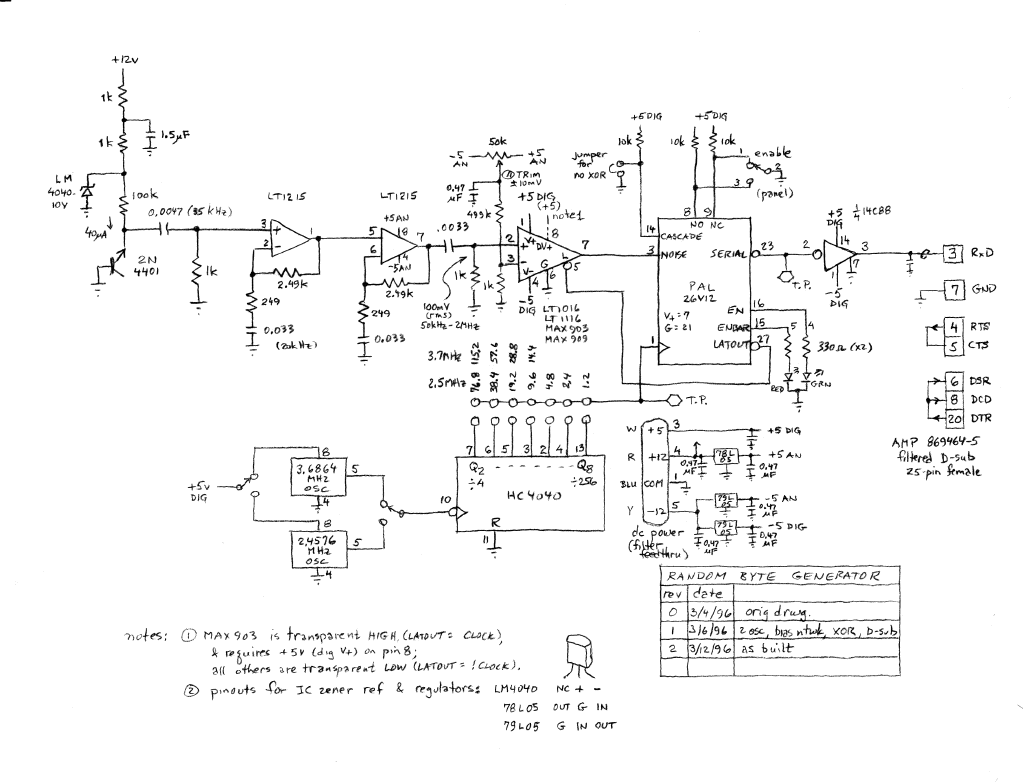 +12V
1k
1.5µF
1k
LM
4040-
10V
100k
40µA
0.0047 (35 kHz)
2N
4401
1k
LT1215
3
2
1
+
-
2.49k
249
0.033
(20kHz)
LT1215
+5AN
5
8
7
6
4
-5AN
2.49k
249
0.033
.0033
1k
100mV
(rms)
50kHz-2MHz
50k
-5
AN
+5
AN
TRIM
±10mV
0.47
µF
499k
1k
+5 DIG
(+5)
note1
1
8
V+
DV+
2
+
3
-
7
L
5
V-
G
4
6
-5
DIG
LT1016
LT1116
MAX903
MAX909
jumper
for
no XOR
+5DIG
10k
+5DIG
10k
10k
1
enable
2
3
9
(panel)
8
9
NO
NC
14
CASCADE
3
NOISE
SERIAL
23
PAL
26V12
V+=7
G=21
EN
16
ENBAR
15
LATOUT
27
1
5
4
330Ω (x2)
3
RED
GRN
T.P.
+5
DIG
1/4 14C88
14
2
3
1
7
-5
DIG
3 RxD
7 GND
4 RTS
5 CTS
6 DSR
8 DCD
20 DTR
AMP 869464-5
filtered D-sub
25-pin female
3.7MHz 115.2 57.6 28.8 14.4
2.5MHz 76.8 38.4 19.2 9.6 4.8 2.4 1.2
T.P.
7 6 5 3 2 4 13
Q2 Q8
÷4 ÷256
HC4040
10
R
11
+5V
DIG
8
3.6864
MHz
OSC
5
4
8
2.4576
MHz
OSC
5
4
W +5 3
+5 DIG
R +12 4
0.47
µF
78L
05
+5 AN
0.47
µF
BLU COM 1
Y -12 5
79L
05
-5 AN
0.47
µF
79L
05
-5 DIG
0.47
µF
0.47
µF
dc power
(filter
feedthru)
RANDOM BYTE GENERATOR
rev date
0 3/4/96 orig drwg.
1 3/6/96 2 osc, bias ntwk, XOR, D-sub
2 3/12/96 as built
notes: ① MAX903 is transparent HIGH, (LATOUT = CLOCK),
& requires +5V (dig V+) on pin 8;
all others are transparent LOW (LATOUT = !CLOCK).
② pinouts for IC zener ref & regulators: LM4040 NC + -
78L05 OUT G IN
79L05 G IN OUT